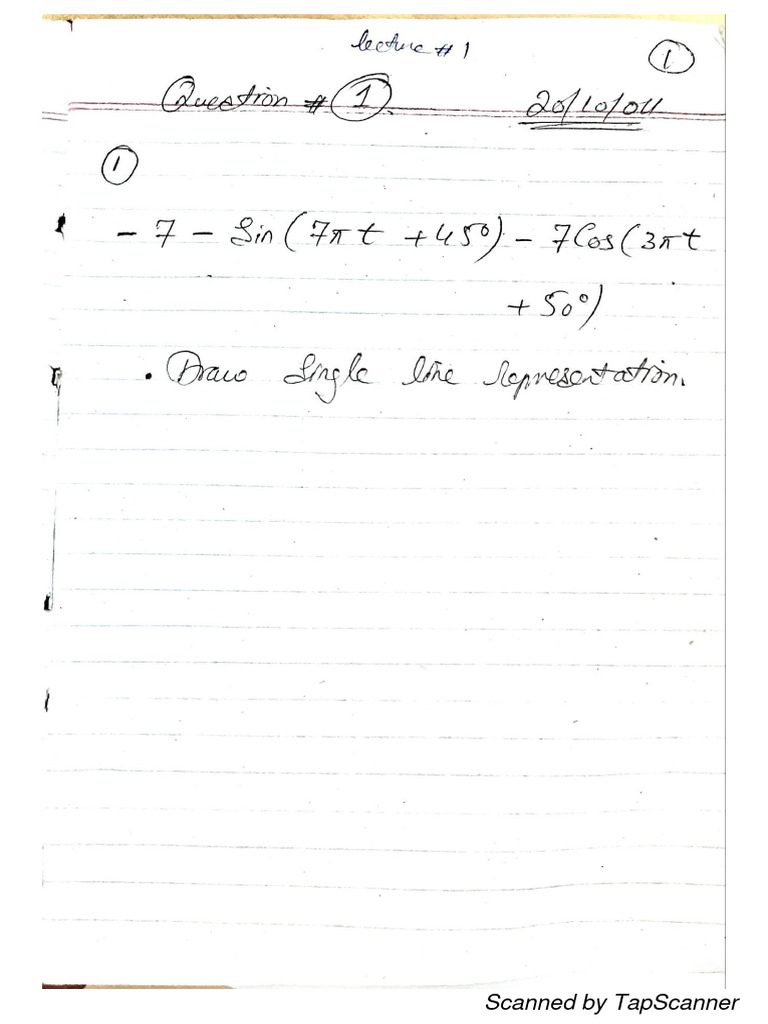 lecture # 1
1
Question # 1.
20/10/04
1
- 7 - Sin(7πt +45°) - 7Cos(3πt
+50°)
. Draw Single line representation.
Scanned by TapScanner